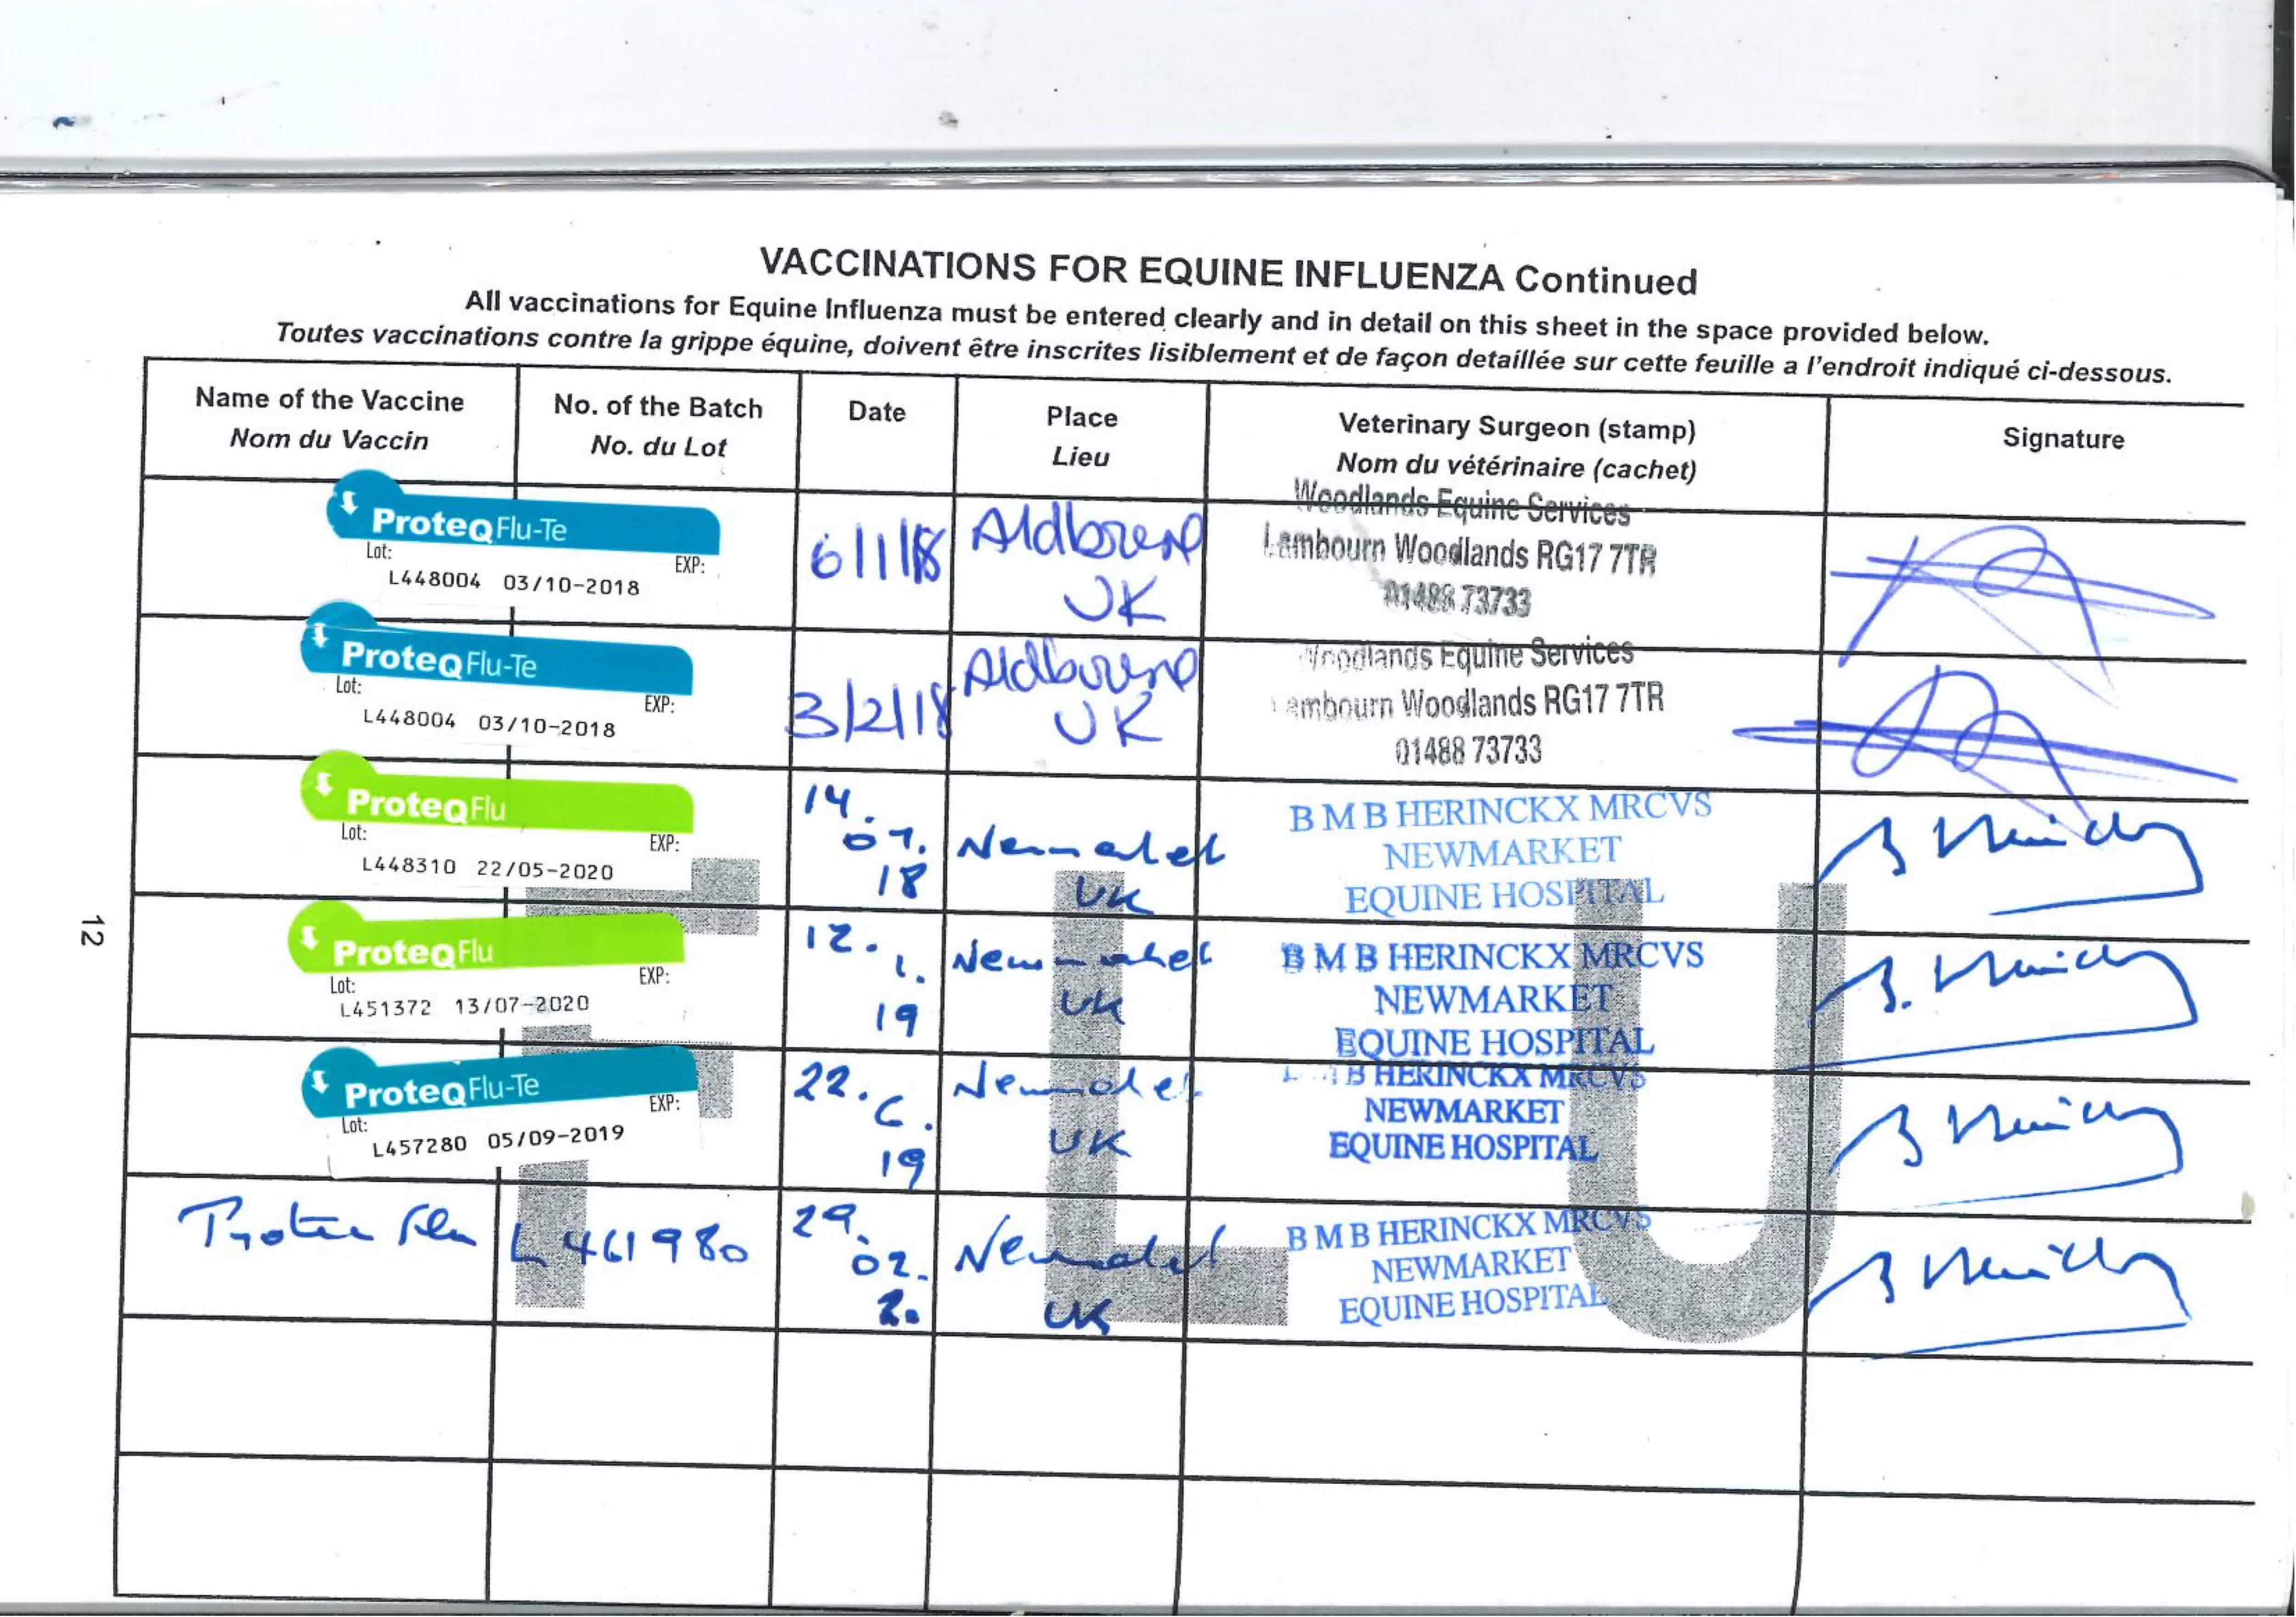 VACCINATIONS FOR EQUINE INFLUENZA Continued
All vaccinations for Equine Influenza must be entered clearly and in detail on this sheet in the space provided below.
Toutes vaccinations contre la grippe équine, doivent être inscrites lisiblement et de façon detaillée sur cette feuille a l'endroit indiqué ci-dessous.
Name of the Vaccine
Nom du Vaccin
No. of the Batch
No. du Lot
Date
Place
Lieu
Veterinary Surgeon (stamp)
Nom du vétérinaire (cachet)
Signature
ProteqFlu-Te
Lot: EXP:
L448004 03/10-2018
6/1/18
Aldbourne
UK
Woodlands Equine Services
Lambourn Woodlands RG17 7TR
01488 73733
ProteqFlu-Te
Lot: EXP:
L448004 03/10-2018
3/2/18
Aldbourne
UK
Woodlands Equine Services
Lambourn Woodlands RG17 7TR
01488 73733
ProteqFlu
Lot: EXP:
L448310 22/05-2020
14.
07.
18
Newmarket
UK
B M B HERINCKX MRCVS
NEWMARKET
EQUINE HOSPITAL
ProteqFlu
Lot: EXP:
L451372 13/07-2020
12.
1.
19
Newmarket
UK
B M B HERINCKX MRCVS
NEWMARKET
EQUINE HOSPITAL
ProteqFlu-Te
Lot: EXP:
L457280 05/09-2019
22.
6.
19
Newmarket
UK
B HERINCKX MRCVS
NEWMARKET
EQUINE HOSPITAL
Proteq Flu
L461980
29.
02.
20
Newmarket
UK
B M B HERINCKX MRCVS
NEWMARKET
EQUINE HOSPITAL
FLU
12